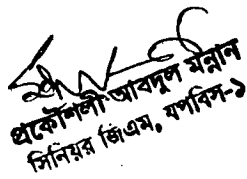 প্রকৌশলী আবদুল মন্নান
সিনিয়র জিএম, যপবিস-১